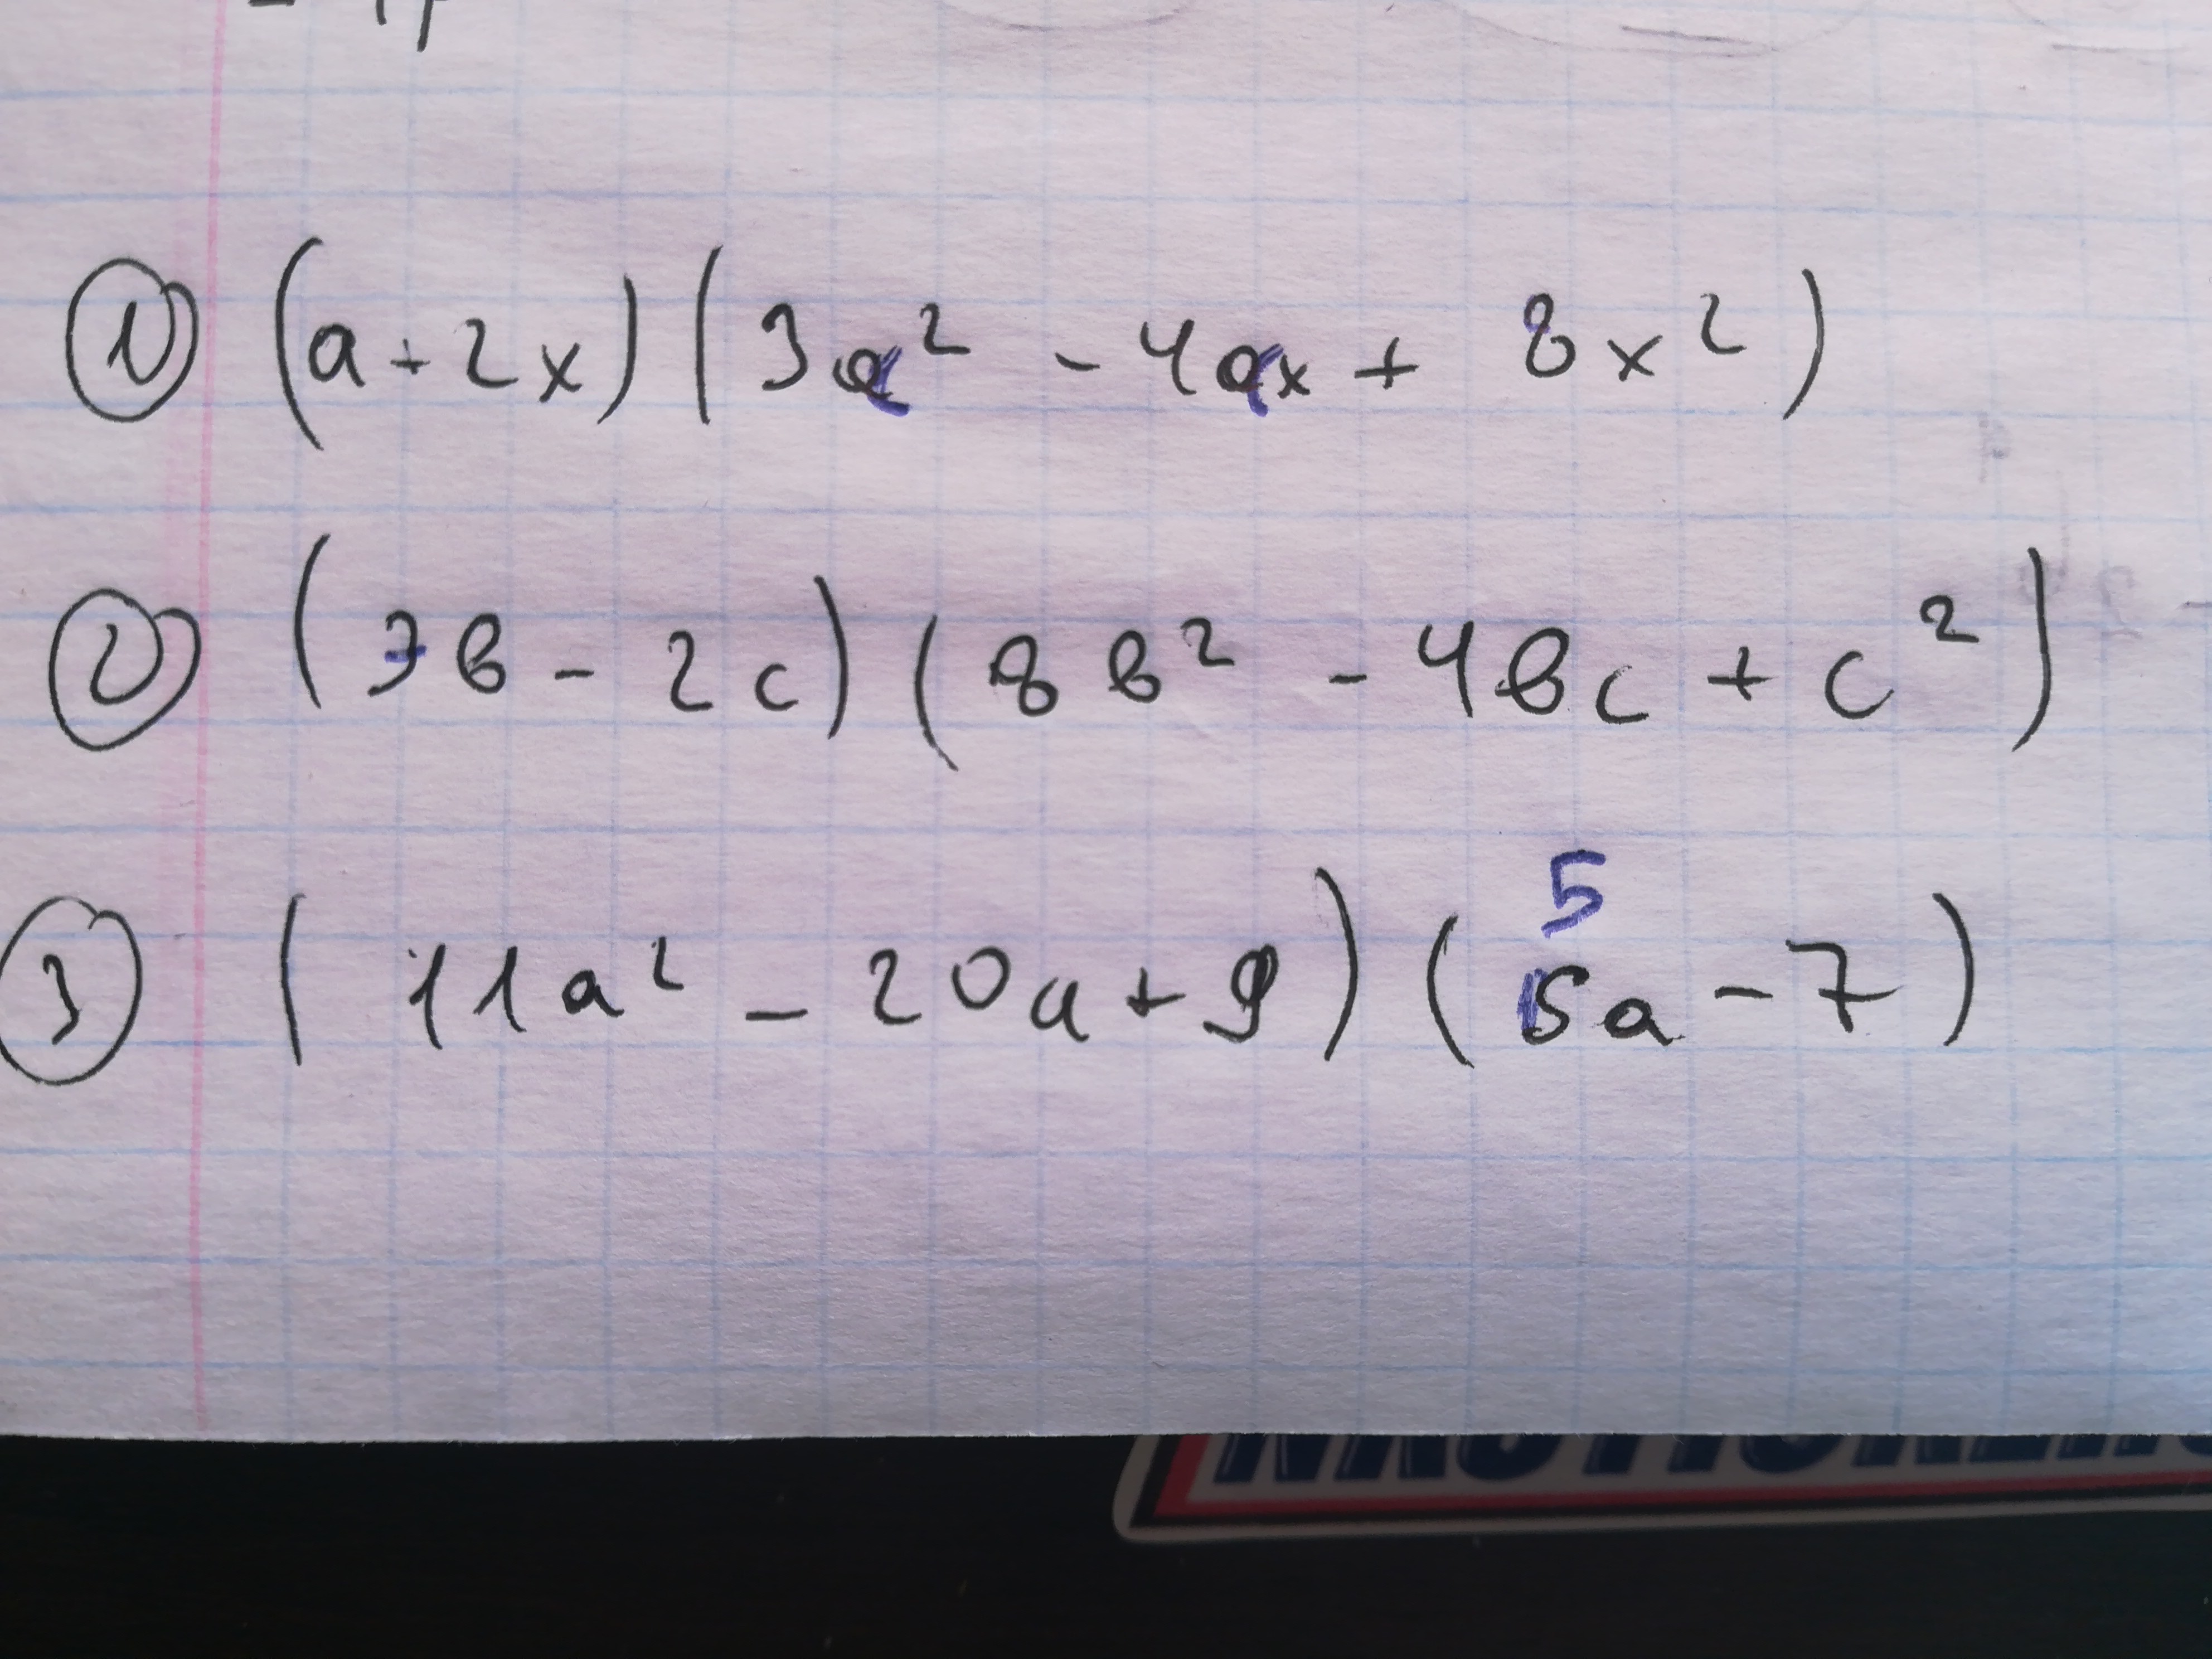 ① (a + 2x) (3a² - 4ax + 8x²)
② (3в - 2c) (8в² - 4вc + c²)
③ (11a² - 20a + 9) (5a - 7)
5